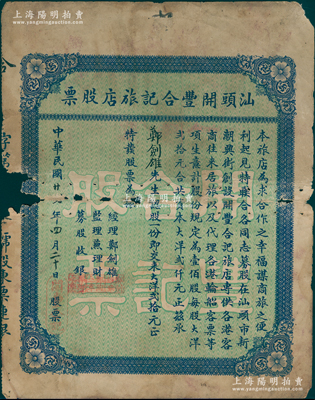 上海陽明拍賣
www.ymauction.com
汕頭開豐合記旅店股票
本旅店為求合作之幸福謀商旅之便
利起見特聯合各同志募股在汕頭市新
潮興街創設開豐合記旅店專供各港客
商往來居旅以及代理各港輪船客票等
項生意計股份規定為壹佰股每股大洋
弍拾元合共股本大洋弍仟元正茲承
鄭創雄先生認股一份即交來大洋弍拾元正
特發股票為
經理鄭創雄
監理兼理財
募股收銀
中華民國廿一年四月二十日
股票
合記
股票
上海陽明拍賣
www.ymauction.com